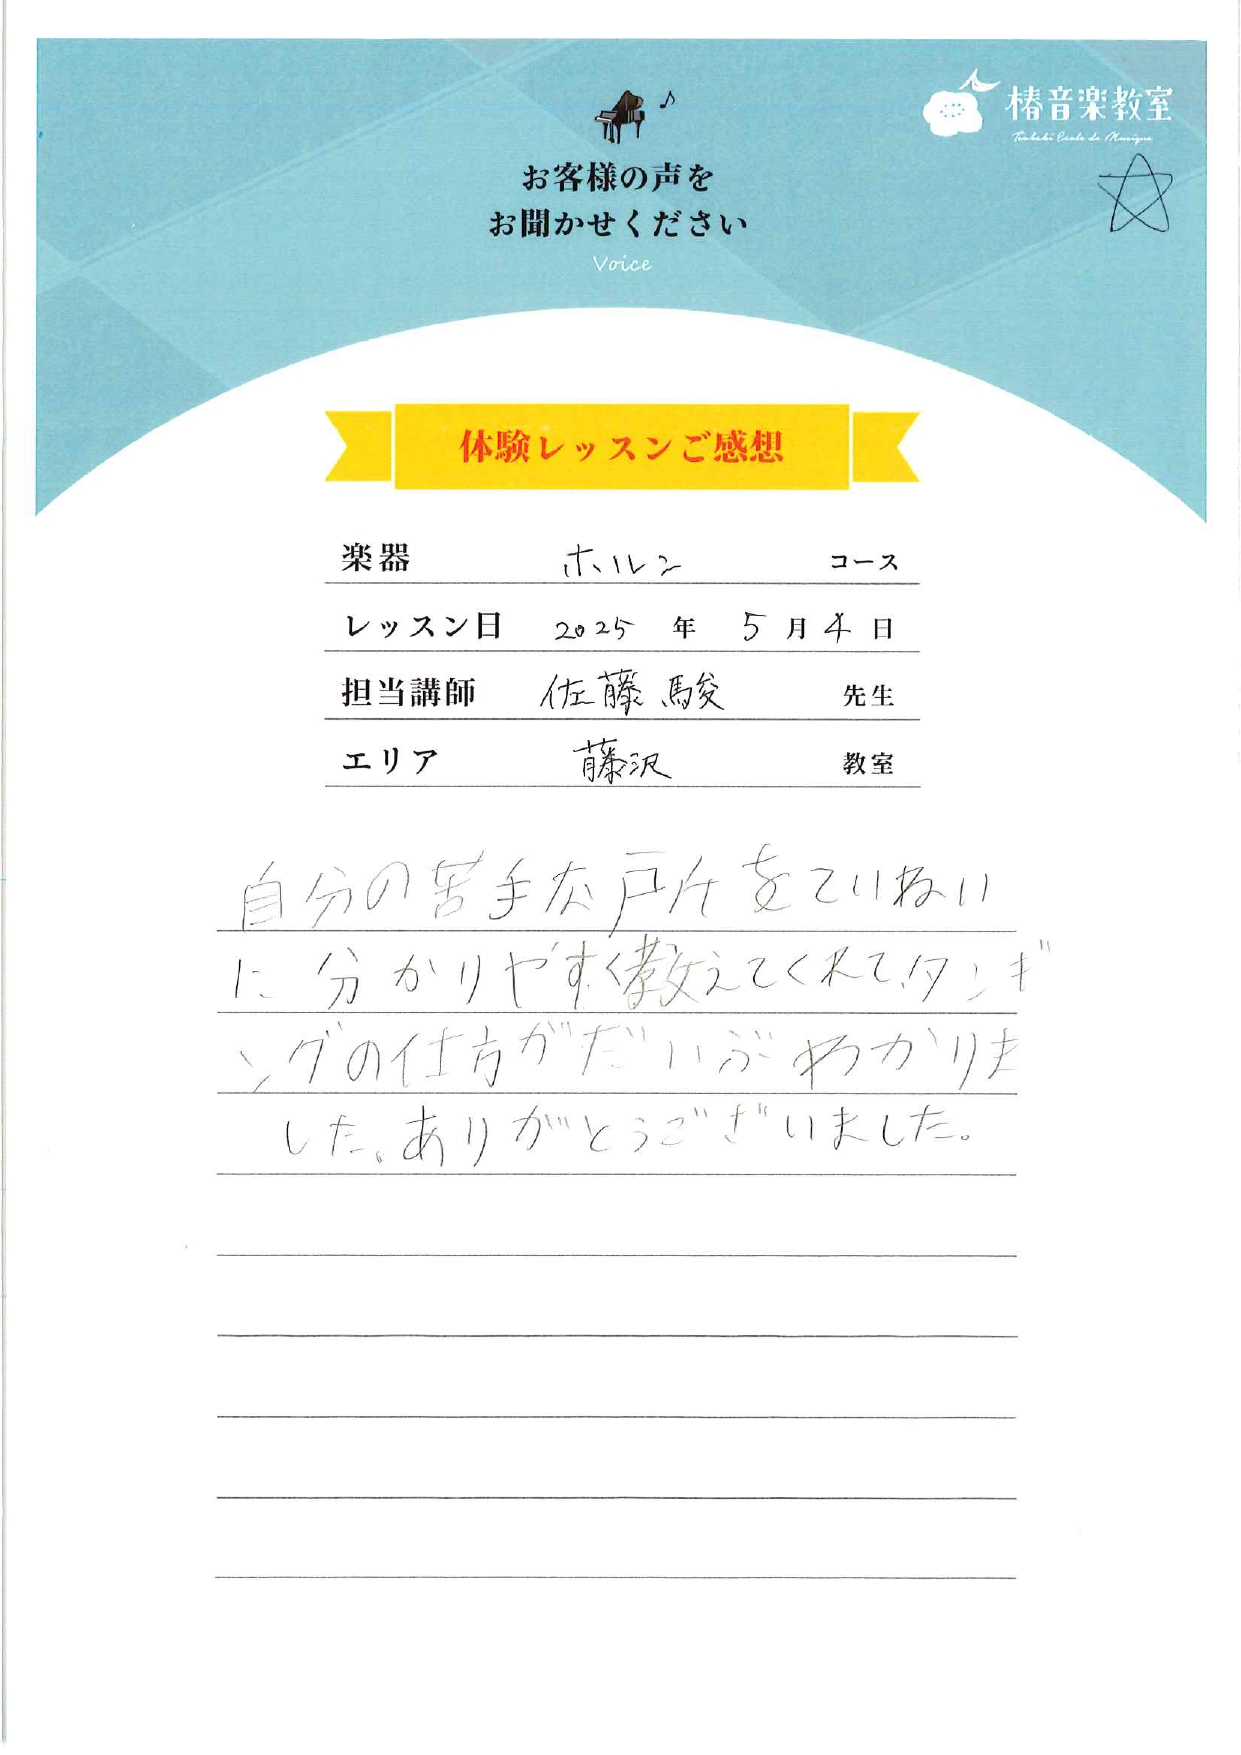 椿音楽教室
Tsubaki Ecole de Musique
お客様の声を
お聞かせください
Voice
体験レッスンご感想
楽器 ホルン コース
レッスン日 2025 年 5 月 4 日
担当講師 佐藤 駿 先生
エリア 藤沢 教室
自分の苦手な所をていねい
に分かりやすく教えてくれて、タンギ
ングの仕方がだいぶわかりま
した。ありがとうございました。